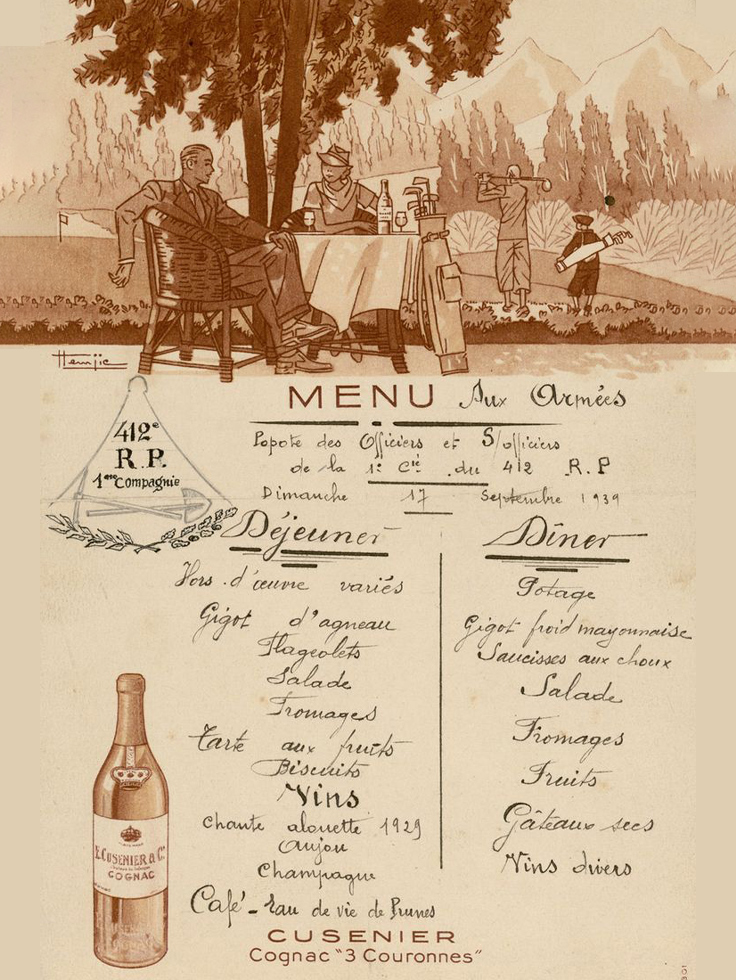 Hemjic
MENU Aux Armées
412e
R.P.
1ère Compagnie
Popote des Officiers et S/officiers
de la 1e Cie du 412 R.P
Dimanche 17 Septembre 1939
Déjeuner
Hors d'œuvre variés
Gigot d'agneau
Flageolets
Salade
Fromages
Tarte aux fruits
Biscuits
Vins
Chante alouette 1929
Anjou
Champagne
Café - Eau de vie de Prunes
Dîner
Potage
Gigot froid mayonnaise
Saucisses aux choux
Salade
Fromages
Fruits
Gâteaux secs
Vins divers
E. CUSENIER & Cie
COGNAC
CUSENIER
Cognac "3 Couronnes"